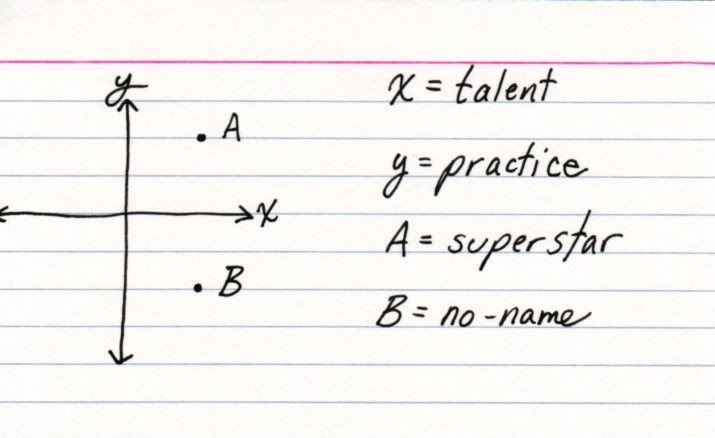 y
A
x
B
x = talent
y = practice
A = superstar
B = no-name